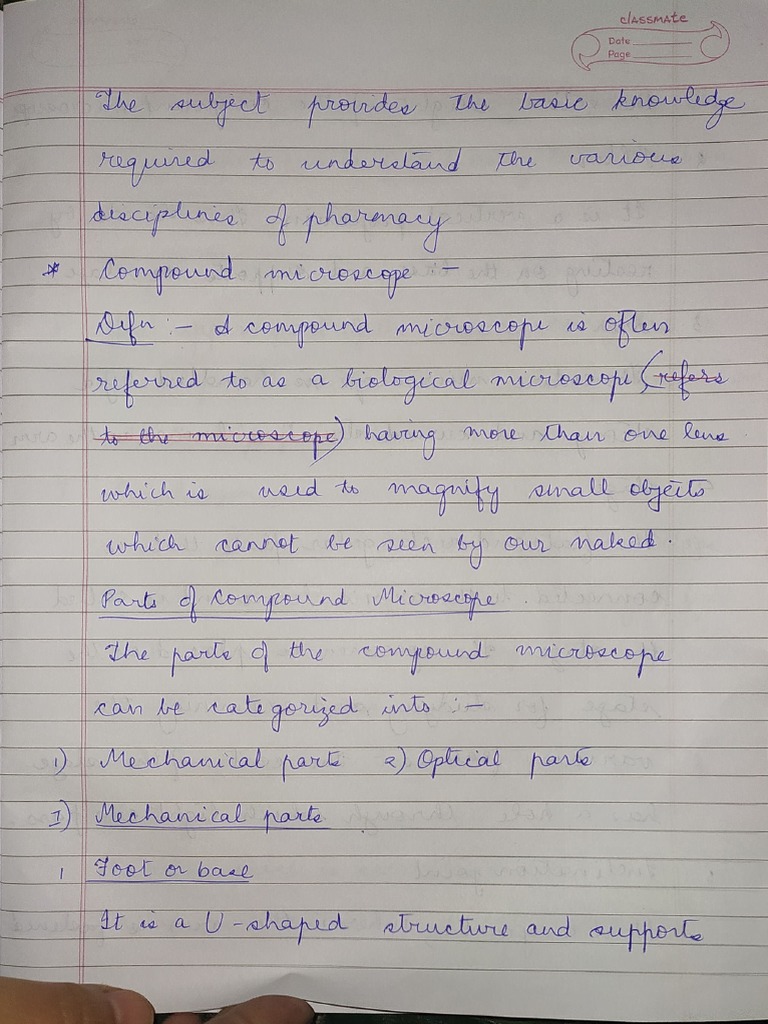 classmate
Date
Page
The subject provides the basic knowledge
required to understand the various
disciplines of pharmacy
* Compound microscope -
Defn :- A compound microscope is often
referred to as a biological microscope (refers
to the microscope) having more than one lens
which is used to magnify small objects
which cannot be seen by our naked.
Parts of Compound Microscope.
The parts of the compound microscope
can be categorized into :-
1) Mechanical parts 2) Optical parts
I) Mechanical parts
1 Foot or base
It is a U-shaped structure and supports